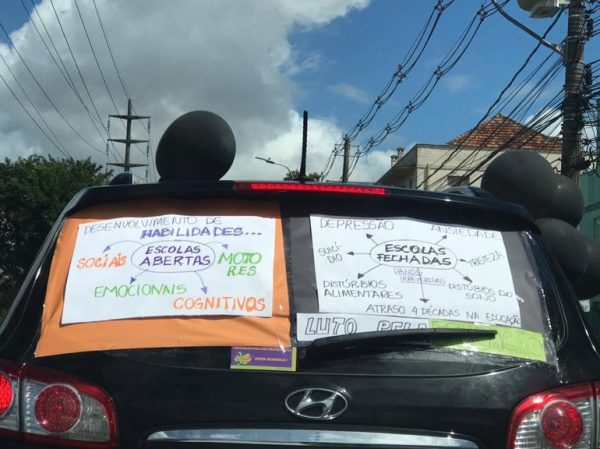 DESENVOLVIMENTO DE
HABILIDADES...
ESCOLAS
ABERTAS
SOCIAIS
MOTO
RES
EMOCIONAIS
COGNITIVOS
DEPRESSÃO
ANSIEDADE
ESCOLAS
FECHADAS
DANOS
IRREVERSÍVEIS
SUICÍ
DIO
TRISTEZA
DISTÚRBIOS
ALIMENTARES
DISTÚRBIOS DO
SONO
ATRASO 4 DÉCADAS NA EDUCAÇÃO
LUTO PELA